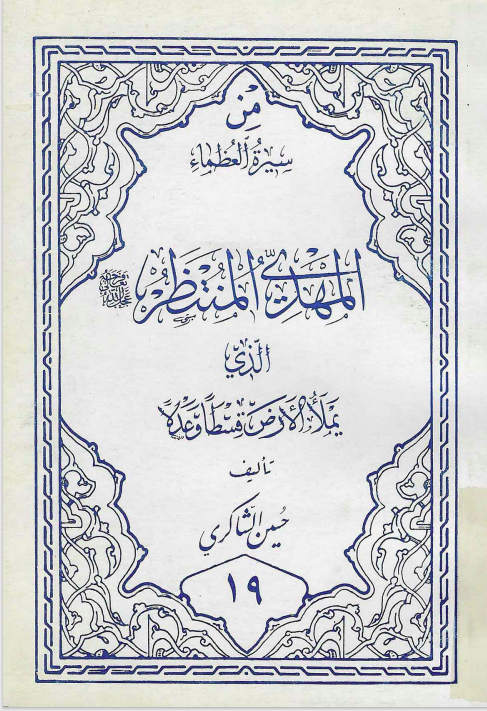 مِنْ
سِيرَةِ العُظَمَاءِ
المَهْدِيُّ المُنْتَظَرُ عجل الله تعالى فرجه
الَّذِي
يَمْلَأُ الأَرْضَ قِسْطاً وَعَدْلاً
تأليف
حُسين الشَّاكري
١٩